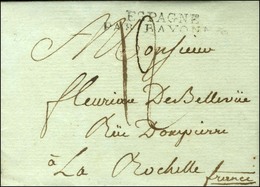 ESPAGNE
PAR BAYONNE
A Monsieur
fleuriau DeBellevüe
Rüe Dompierre
à La Rochelle
france